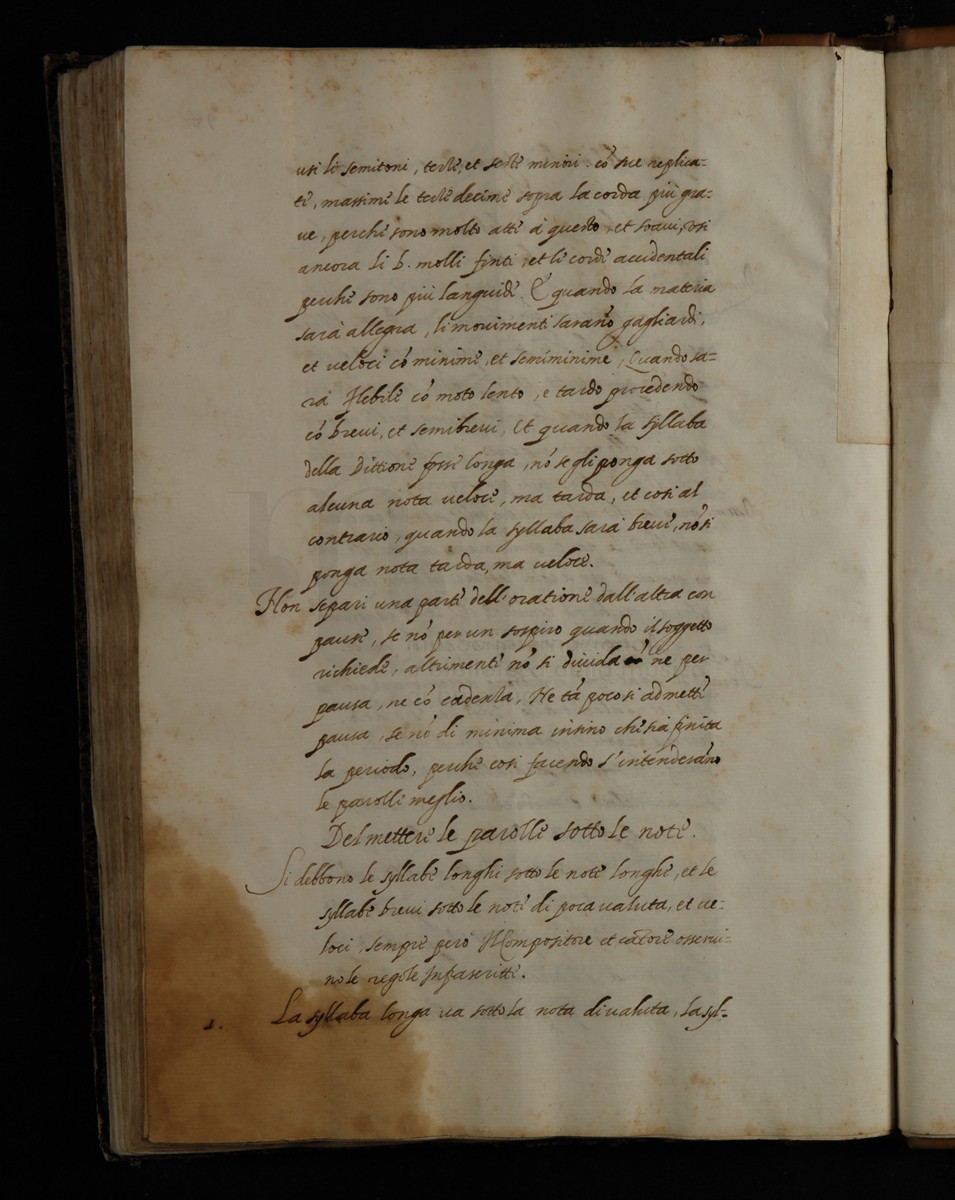 usi li semitoni, terze, et seste minori. cō sue replica=
te, massime le terze decime sopra la corda più gra=
ue, perche sono molto atte à questo, et soaui, usi
ancora li b. molli finti, et le corde accidentali
perche sono più languide. E quando la materia
sarà allegra, li mouimenti sarañ̃o gagliardi,
et veloci cō minime, et semiminime, Quando sa=
rà flebile cō moto lento, e tardo procedendo
cō breui, et semibreui, Et quando la syllaba
della Dittione fosse longa, nō se gli ponga sotto
alcuna nota veloce, ma tarda, et cosi al
contrario, quando la syllaba sarà breue, nō si
ponga nota tarda, ma veloce.
Non separi una parte dell'oratione dall'altra con
pause, se nō per un sospiro quando il soggetto
richiede, altrimente nō si diuida ne per
pausa, ne cō cadenza, Ne tā poco si admette
pausa, se nō di minima insino che sia finita
la periodo, perche cosi facendo s'intenderāno
le parolle meglio.
Del mettere le parolle sotto le note.
Si debbono le syllabe longhi sotto le note longhe, et le
syllabe breui sotto le note di poca valuta, et ue=
loci, sempre però il Compositore et cātore osserui=
no le regole Infrascritte.
1. La syllaba longa ua sotto la nota di valuta, la syl=